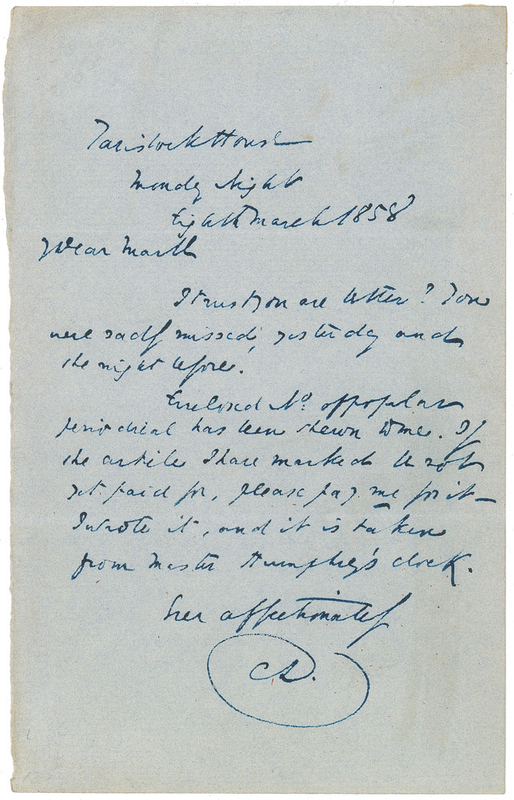 Tavistock House
Monday Night
Eighth March 1858
My Dear Mark
I trust you are better? You
were sadly missed, yesterday and
the night before.
Enclosed No. of popular
periodical has been shewn to me. If
the article I have marked be not
yet paid for, please pay me for it —
I wrote it, and it is taken
from Master Humphrey's Clock.
Ever affectionately
CD.